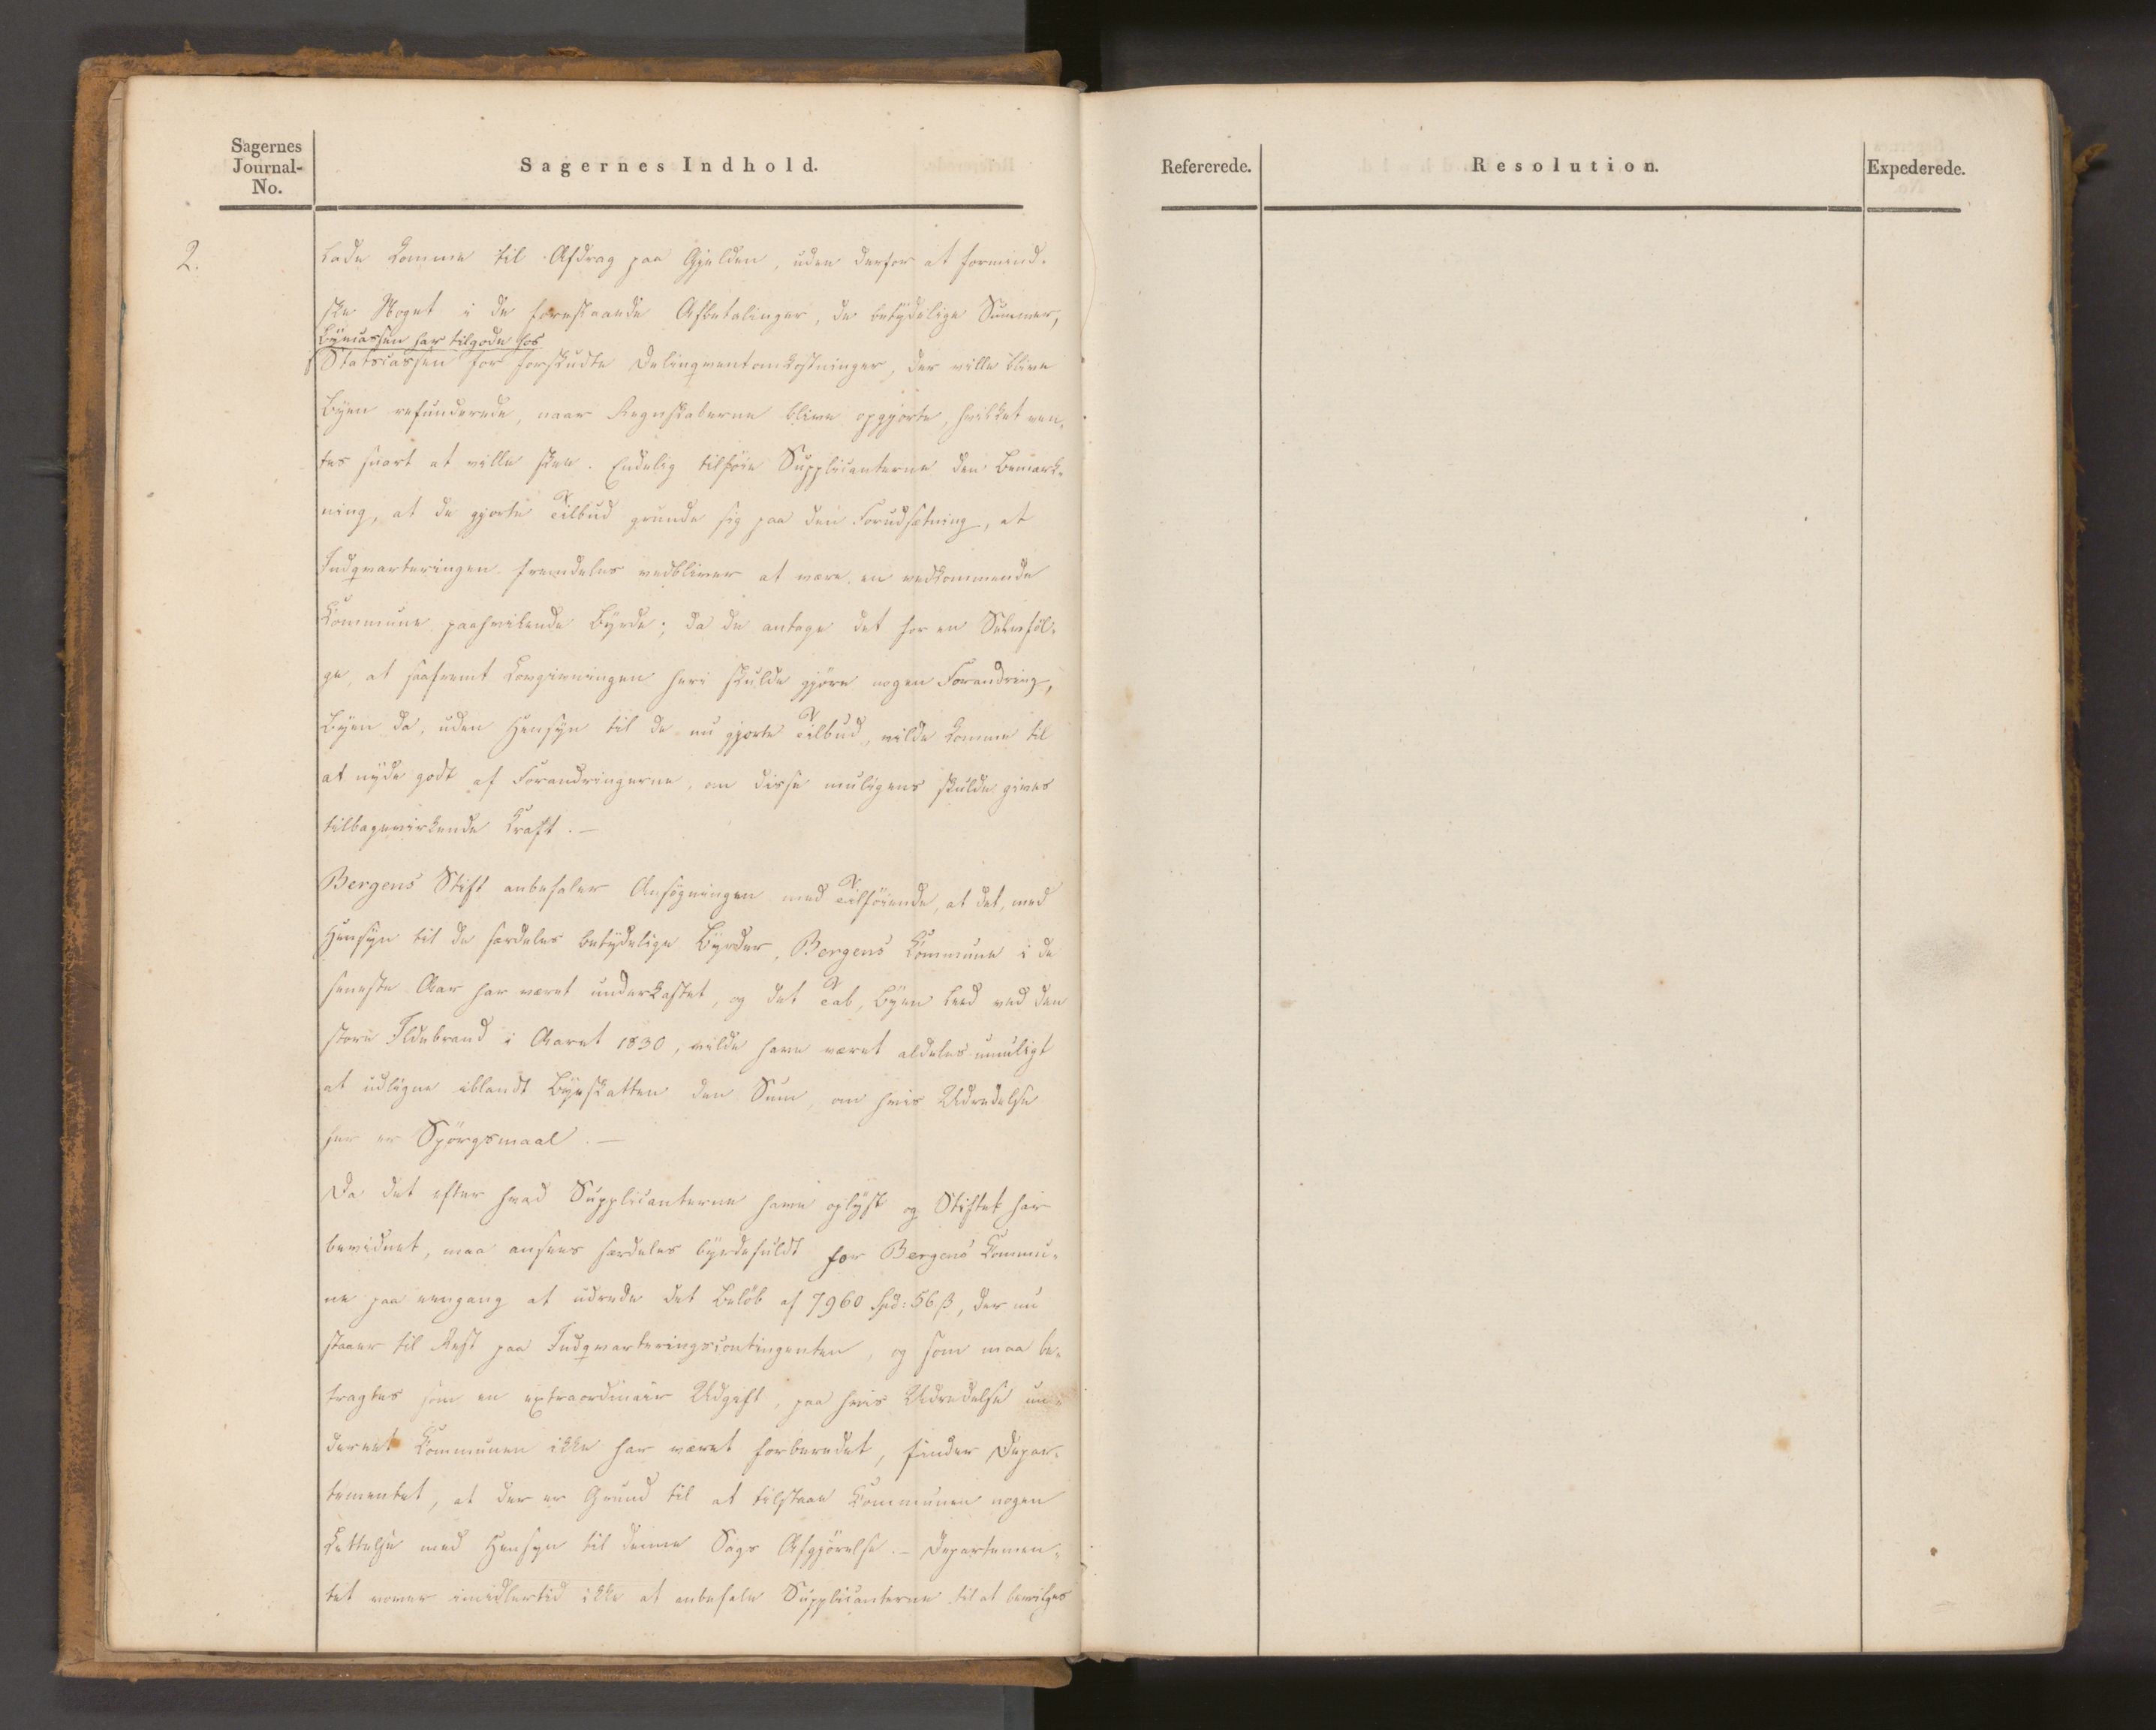 Sagernes
Journal-
No.
Sagernes Indhold.
2.
lade komme til Afdrag paa Gjelden, uden derfor at formind-
ske Noget i de forestaaende Afbetalinger, de betydelige Summer,
Byecassen har tilgode hos
Statscassen for forskudte Delinqventomkostninger, der ville blive
Byen refunderede, naar Regnskaberne blive opgjorte, hvilket ven-
tes snart at ville skee. Endelig tilføie Supplicanterne den Bemærk-
ning, at de gjorte Tilbud grunde sig paa den Forudsætning, at
Indqvarteringen fremdeles vedbliver at være en vedkommende
Kommune paahvilende Byrde; da de antage det for en Selvføl-
ge, at saafremt Lovgivningen heri skulde gjøre nogen Forandring,
Byen da, uden Hensyn til de nu gjorte Tilbud, vilde komme til
at nyde godt af Forandringerne, om disse muligens skulde gives
tilbagevirkende Kraft. —
Bergens Stift anbefaler Ansøgningen med Tilføiende, at det, med
Hensyn til de særdeles betydelige Byrder, Bergens Kommune i de
seneste Aar har været underkastet, og det Tab, Byen leed ved den
store Ildebrand i Aaret 1830, vilde have været aldeles umuligt
at udligne iblandt Byeskatten den Sum, om hvis Udredelse
her er Spörgsmaal. —
Da det efter hvad Supplicanterne have oplyst og Stiftet har
bevidnet, maa ansees særdeles byrdefuldt for Bergens Kommu-
ne paa eengang at udrede det Beløb af 7960 Spd: 56 ß, der nu
staaer til Rest paa Indqvarteringscontingenten, og som maa be-
tragtes som en extraordinair Udgift, paa hvis Udredelse un-
derveis Kommunen ikke har været forberedet, finder Depar-
tementet, at der er Grund til at tilstaae Kommunen nogen
Lettelse med Hensyn til denne Sags Afgjørelse. — Departemen-
tet vover imidlertid ikke at anbefale Supplicanterne til at bevilges
Refererede.
Resolution.
Expederede.